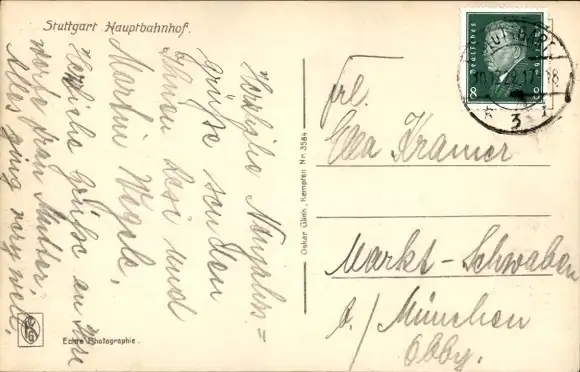 Stuttgart Hauptbahnhof.
Herzliche Neujahrs=
grüße senden
Ihnen Resi und
Martin Wegele,
Herzliche Grüße an Ihre
werte Frau Mutter.
Alles ging very well.
Echte Photographie.
Oskar Glink, Kempten Nr. 3584
Deutsches Reich
8 8
STUTTGART
3
Frl.
Ella Kramer
Markt-Schwaben
b./ München
Obby.